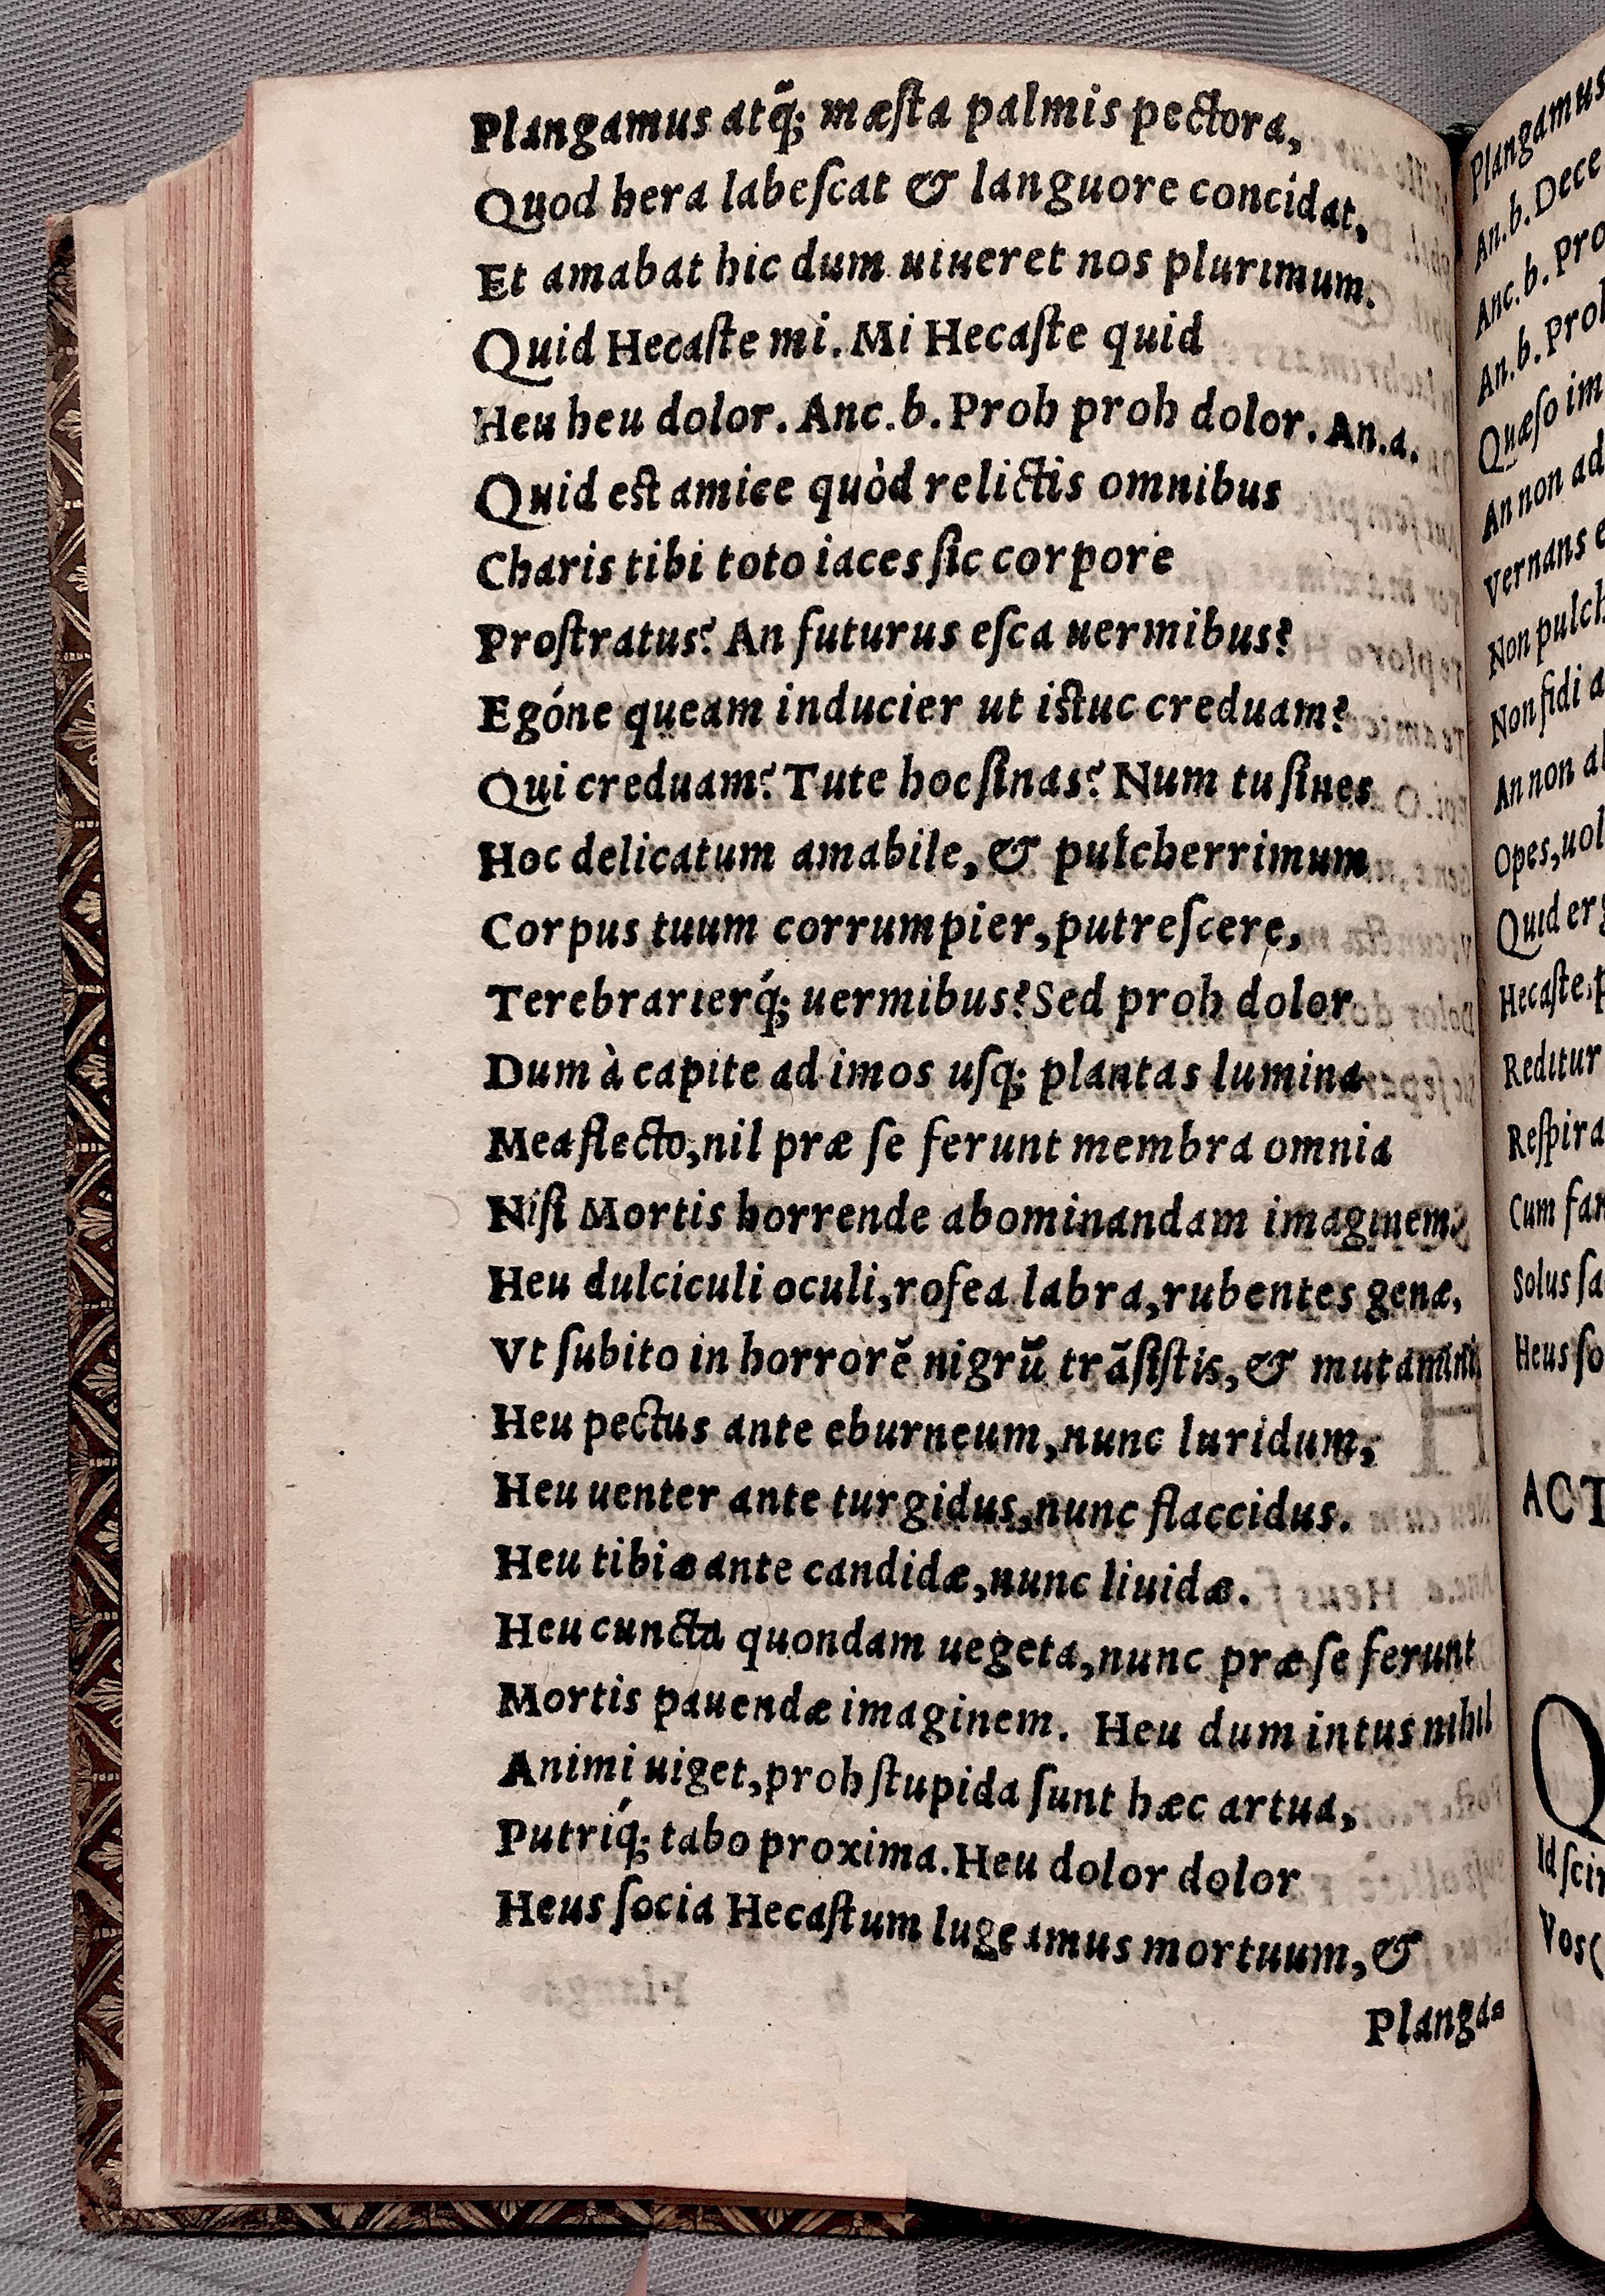 Plangamus atq̃; mæſta palmis pectora,
Quod hera labeſcat & languore concidat,
Et amabat hic dum uiueret nos plurimum.
Quid Hecaſte mi. Mi Hecaſte quid
Heu heu dolor. Anc. b. Proh proh dolor. An. a.
Quid est amice quòd relictis omnibus
Charis tibi toto iaces ſic corpore
Proſtratus? An futurus eſca uermibus?
Egóne queam inducier ut istuc creduam?
Qui creduam? Tute hoc ſinas? Num tu ſines
Hoc delicatum amabile, & pulcherrimum
Corpus tuum corrumpier, putreſcere,
Terebrarierq́; uermibus? Sed proh dolor
Dum à capite ad imos uſq; plantas lumina
Mea flecto, nil præ ſe ferunt membra omnia
Niſi Mortis horrende abominandam imaginem?
Heu dulciculi oculi, roſea labra, rubentes genæ,
Vt ſubito in horrorẽ nigrũ trãſiſtis, & mutamini,
Heu pectus ante eburneum, nunc luridum,
Heu uenter ante turgidus, nunc flaccidus.
Heu tibiæ ante candidæ, nunc liuidæ.
Heu cuncta quondam uegeta, nunc præ ſe ferunt
Mortis pauendæ imaginem. Heu dum intus nihil
Animi uiget, proh ſtupida ſunt hæc artua,
Putriq́; tabo proxima. Heu dolor dolor
Heus ſocia Hecaſtum lugeamus mortuum, &
Planga-
Plangamus
An. b. Dece
Anc. b. Pro
An. b. Proh
Quæſo im
An non ad
Vernans e
Non pulch
Non fidi a
An non al
Opes, uol
Quid erg
Hecaſte, p
Reditur
Reſpira
Cum fam
Solus ſa
Heus ſo
ACT
Q
Id ſcir
Vos (